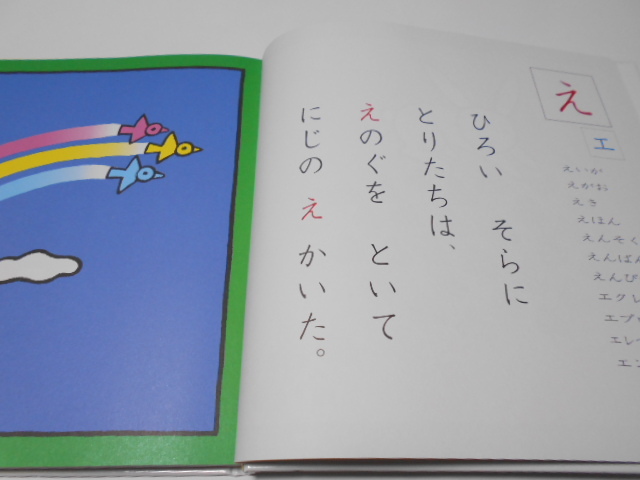 え
エ
ひろい そらに
とりたちは、
えのぐを といて
にじの え かいた。
えいが
えがお
えき
えほん
えんそく
えんばん
えんぴ
エクレ
エプ
エレベ
エン